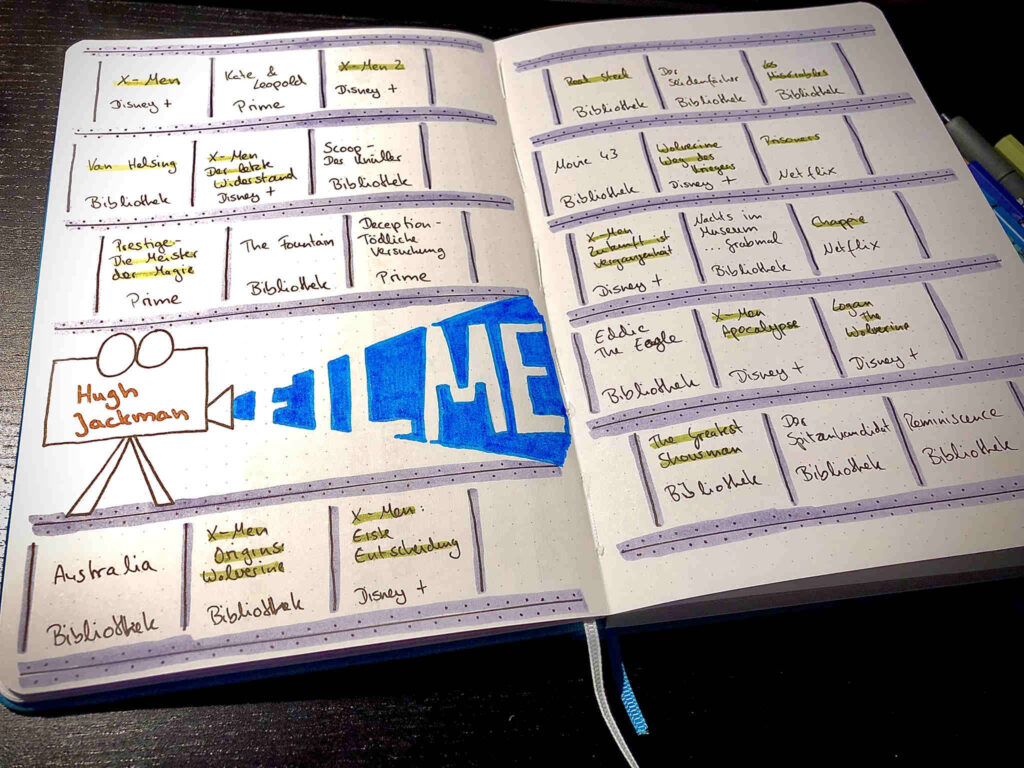 X-Men
Disney +
Kate &
Leopold
Prime
X-Men 2
Disney +
Van Helsing
Bibliothek
X-Men
Der letzte
Widerstand
Disney +
Scoop-
Der Knüller
Bibliothek
Prestige-
Die Meister
der Magie
Prime
The Fountain
Bibliothek
Deception-
Tödliche
Versuchung
Prime
Hugh
Jackman
FILME
Australia
Bibliothek
X-Men
Origins
Wolverine
Bibliothek
X-Men:
Erste
Entscheidung
Disney +
Real Steel
Bibliothek
Der
Bibliothek
Les
Misérables
Bibliothek
Movie 43
Bibliothek
Wolverine
Weg des
Kriegers
Disney +
Prisoners
Netflix
X-Men
Zukunft ist
Vergangenheit
Disney +
Nachts im
Museum
... Grabmal
Bibliothek
Chappie
Netflix
Eddie
The Eagle
Bibliothek
X-Men
Apocalypse
Disney +
Logan
The
Wolverine
Disney +
The Greatest
Showman
Bibliothek
Der
Spitzenkandidat
Bibliothek
Reminiscence
Bibliothek